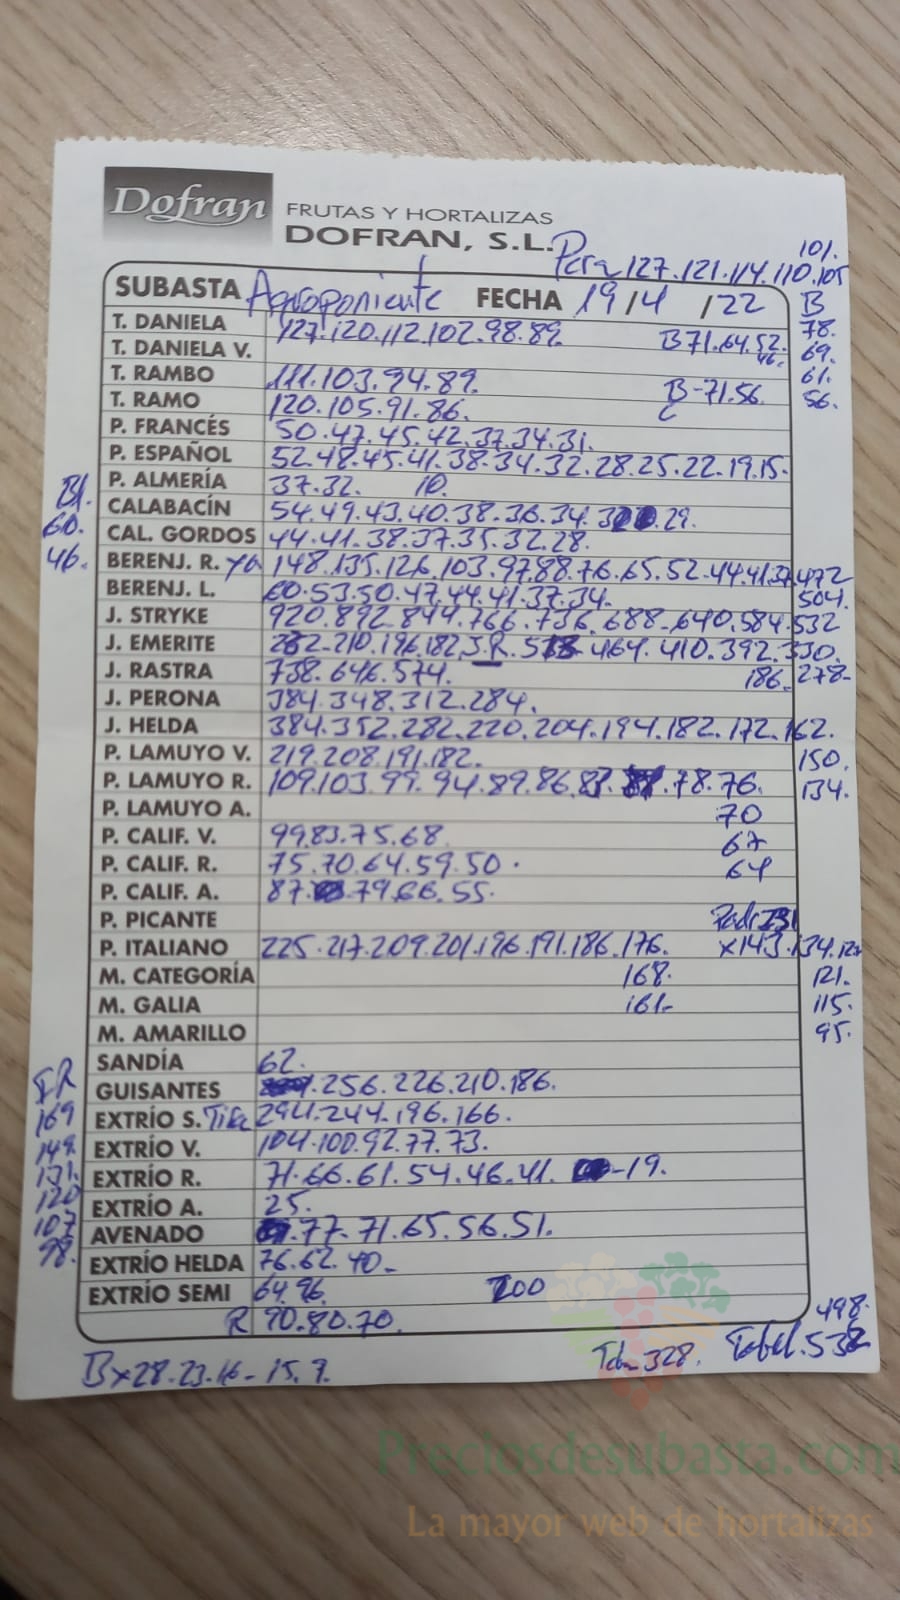 Dofran FRUTAS Y HORTALIZAS
DOFRAN, S.L.
Pera 127.121.114.110.105
101.
SUBASTA Agroponiente FECHA 19/4/22 B
T. DANIELA 127.120.112.102.98.89. B 71.64.52. 78.
T. DANIELA V. 46. 69.
T. RAMBO 111.103.94.89. 61.
T. RAMO 120.105.91.86. B-71.56. 56.
P. FRANCÉS 50.47.45.42.37.34.31.
P. ESPAÑOL 52.48.45.41.38.34.32.28.25.22.19.15.
P. ALMERÍA 37.32. 10.
Bl. CALABACÍN 54.49.43.40.38.36.34. 29.
60. CAL. GORDOS 44.41.38.37.35.32.28.
46. BERENJ. R. 148.135.126.103.97.88.76.65.52.44.41.37. 472
BERENJ. L. 60.53.50.47.44.41.37.34. 504.
J. STRYKE 920.892.844.766.736.688-640.584.532
J. EMERITE 210.196.182. S.R. 464.410.392.330.
J. RASTRA 738.646.574. 186. 278-
J. PERONA 384.348.312.284.
J. HELDA 384.352.282.220.204.194.182.172.162.
P. LAMUYO V. 219.208.191.182. 150.
P. LAMUYO R. 109.103.99.94.89.86.83. 78.76. 134.
P. LAMUYO A. 70
P. CALIF. V. 99.83.75.68. 67
P. CALIF. R. 75.70.64.59.50. 64
P. CALIF. A. 87. 79.66.55.
P. PICANTE
P. ITALIANO 225.217.209.201.196.191.186.176. x143.134.
M. CATEGORÍA 168. 121.
M. GALIA 161.- 115.
M. AMARILLO 95.
SANDÍA 62.
GUISANTES 256.226.210.186.
169 EXTRÍO S. 294.244.196.166.
149. EXTRÍO V. 104.100.92.77.73.
131. EXTRÍO R. 71.66.61.54.46.41. -19.
120 EXTRÍO A. 25.
107 AVENADO 77.71.65.56.51.
98. EXTRÍO HELDA 76.62.40-
EXTRÍO SEMI 64.96. 200
R 90.80.70. 498.
Bx28.23.16-15.9. 328.
Preciosdesubasta.com
La mayor web de hortalizas